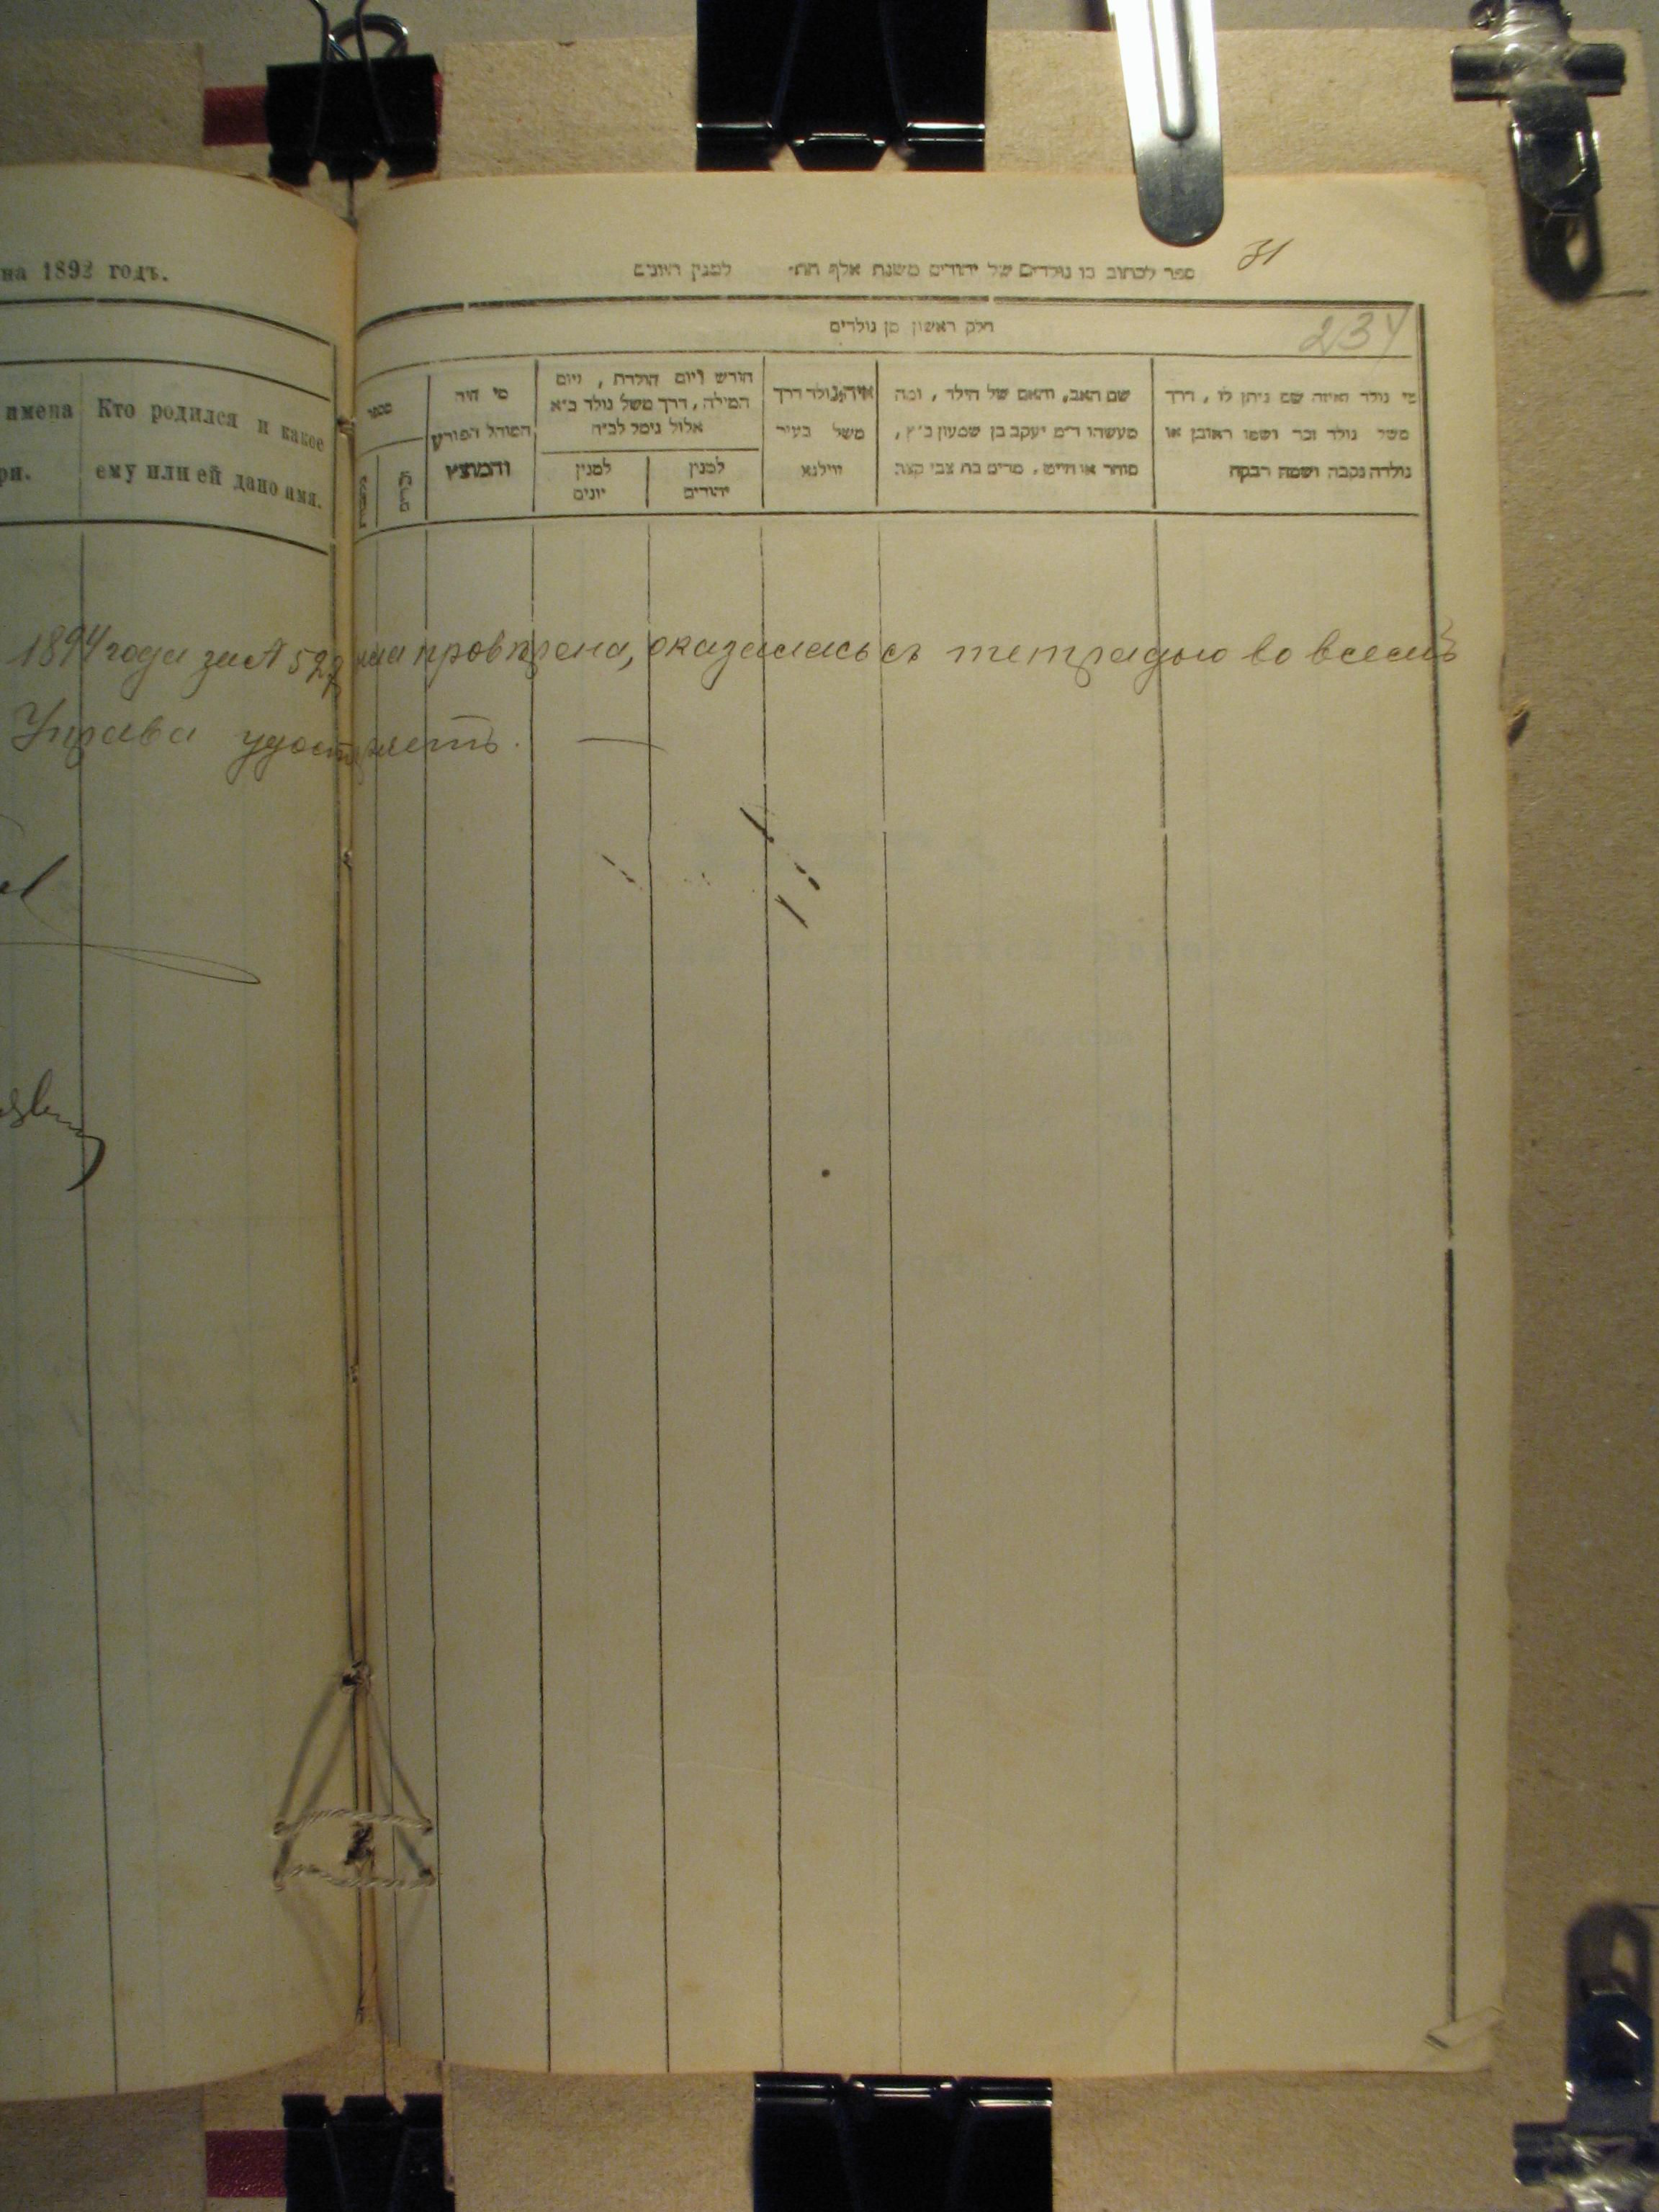 на 1892 годъ.
имена
ри.
Кто родился и какое
ему или ей дано имя.
31
ספר לכתוב בו נולדים של יהודים משנת אלף תת״ למנין היונים
234
חלק ראשון מן נולדים
מי נולד ואיזה שם ניתן לו, דרך
משל נולד זכר ושמו ראובן או
נולדה נקבה ושמה רבקה
שם האב, והאם של הילד, ומה
מעשהו ד״מ יעקב בן שמעון כ״ץ,
סוחר או חייט, מרים בת צבי קצב
איה נולד דרך
משל בעיר
ווילנא
חודש ויום הולדת, ויום
המילה, דרך משל נולד כ״א
אלול ניסל לכ״ח
למנין
יהודים
למנין
יונים
מי היה
המוהל הפורע
והמוצץ
מספר
1894 года за № 527 провѣрена, оказалась съ тетрадью во всемъ
Управа удостѣ.